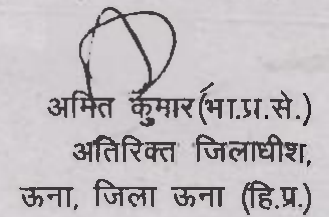 अमित कुमार (भा.प्र.से.)
अतिरिक्त जिलाधीश,
ऊना, जिला ऊना (हि.प्र.)